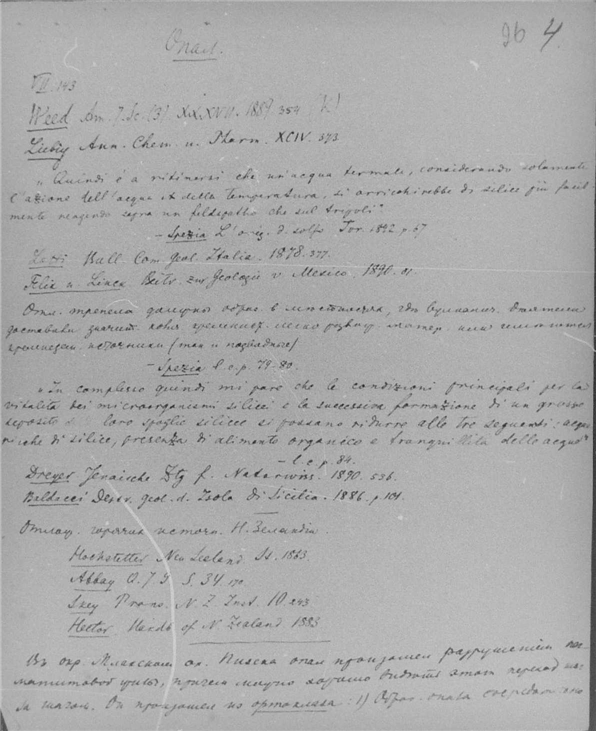 26 4
Опал.
VII. 143
Weed Am. J. Sc. (3) XXXVII. 1889. 354 (V.)
Liebig Ann. Chem. u. Pharm. XCIV. 373
„Quindi è a ritenersi che un'acqua termale, considerando solamente
l'azione dell'acqua e della temperatura, si arricchirebbe di silice più facil-
mente reagendo sopra un feldspatho che sul tripoli"
– Spezia L'orig. d. solfo Tor. 1892. p. 67
Bull. Com. geol. Italia. 1878. 377.
Felix u. Lenck Beitr. zur Geologie v. Mexico. 1890. 91.
Отл. трепела должны образ. в местностях, где вулканич. деятельн.
доставила значит. колич. кремнезема
источники (там и подводные)
– Spezia l. c. p. 79-80.
„In complesso quindi mi pare che le condizioni principali per la
vitalità dei microorganismi silicei e la successiva formazione di un grosso
deposito di loro spoglie silicee si possano ridurre alle tre seguenti: acque
ricche di silice, presenza di alimento organico e tranquillità delle acque"
– l. c. p. 84.
Dreyer Jenaische Ztg f. Naturwiss. 1890. 536.
Baldacci Descr. geol. d. Isola di Sicilia. 1886. p. 101.
Отлож. горячих источн. Н. Зеландии.
Hochstetter New Zeeland St. 1863.
Abbay Q. J. G. S. 34. 170.
Skey Trans. N. Z. Inst. 10. 243
Hector Handb. of N. Zealand 1883
Въ окр. ол. Писека опал произошел разрушением пег-
матитовой жилы, причем можно хорошо видеть этот переход шаг
за шагом. Он произошел из ортоклаза: 1) Образ. опала